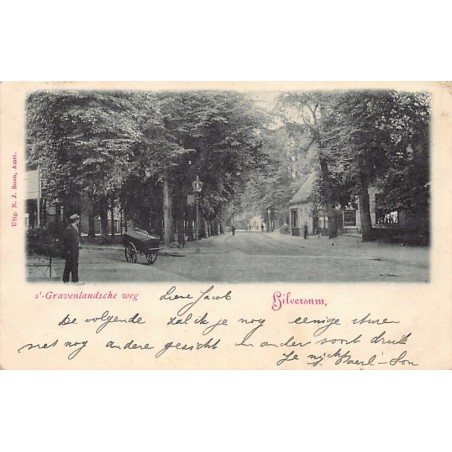 Uitg. N. J. Boon, Amst.
s'-Gravenlandsche weg
Hilversum,
Lieve Jacob
De volgende zal ik je nog eenige sturen
met nog andere gezicht in ander soort druk
Je